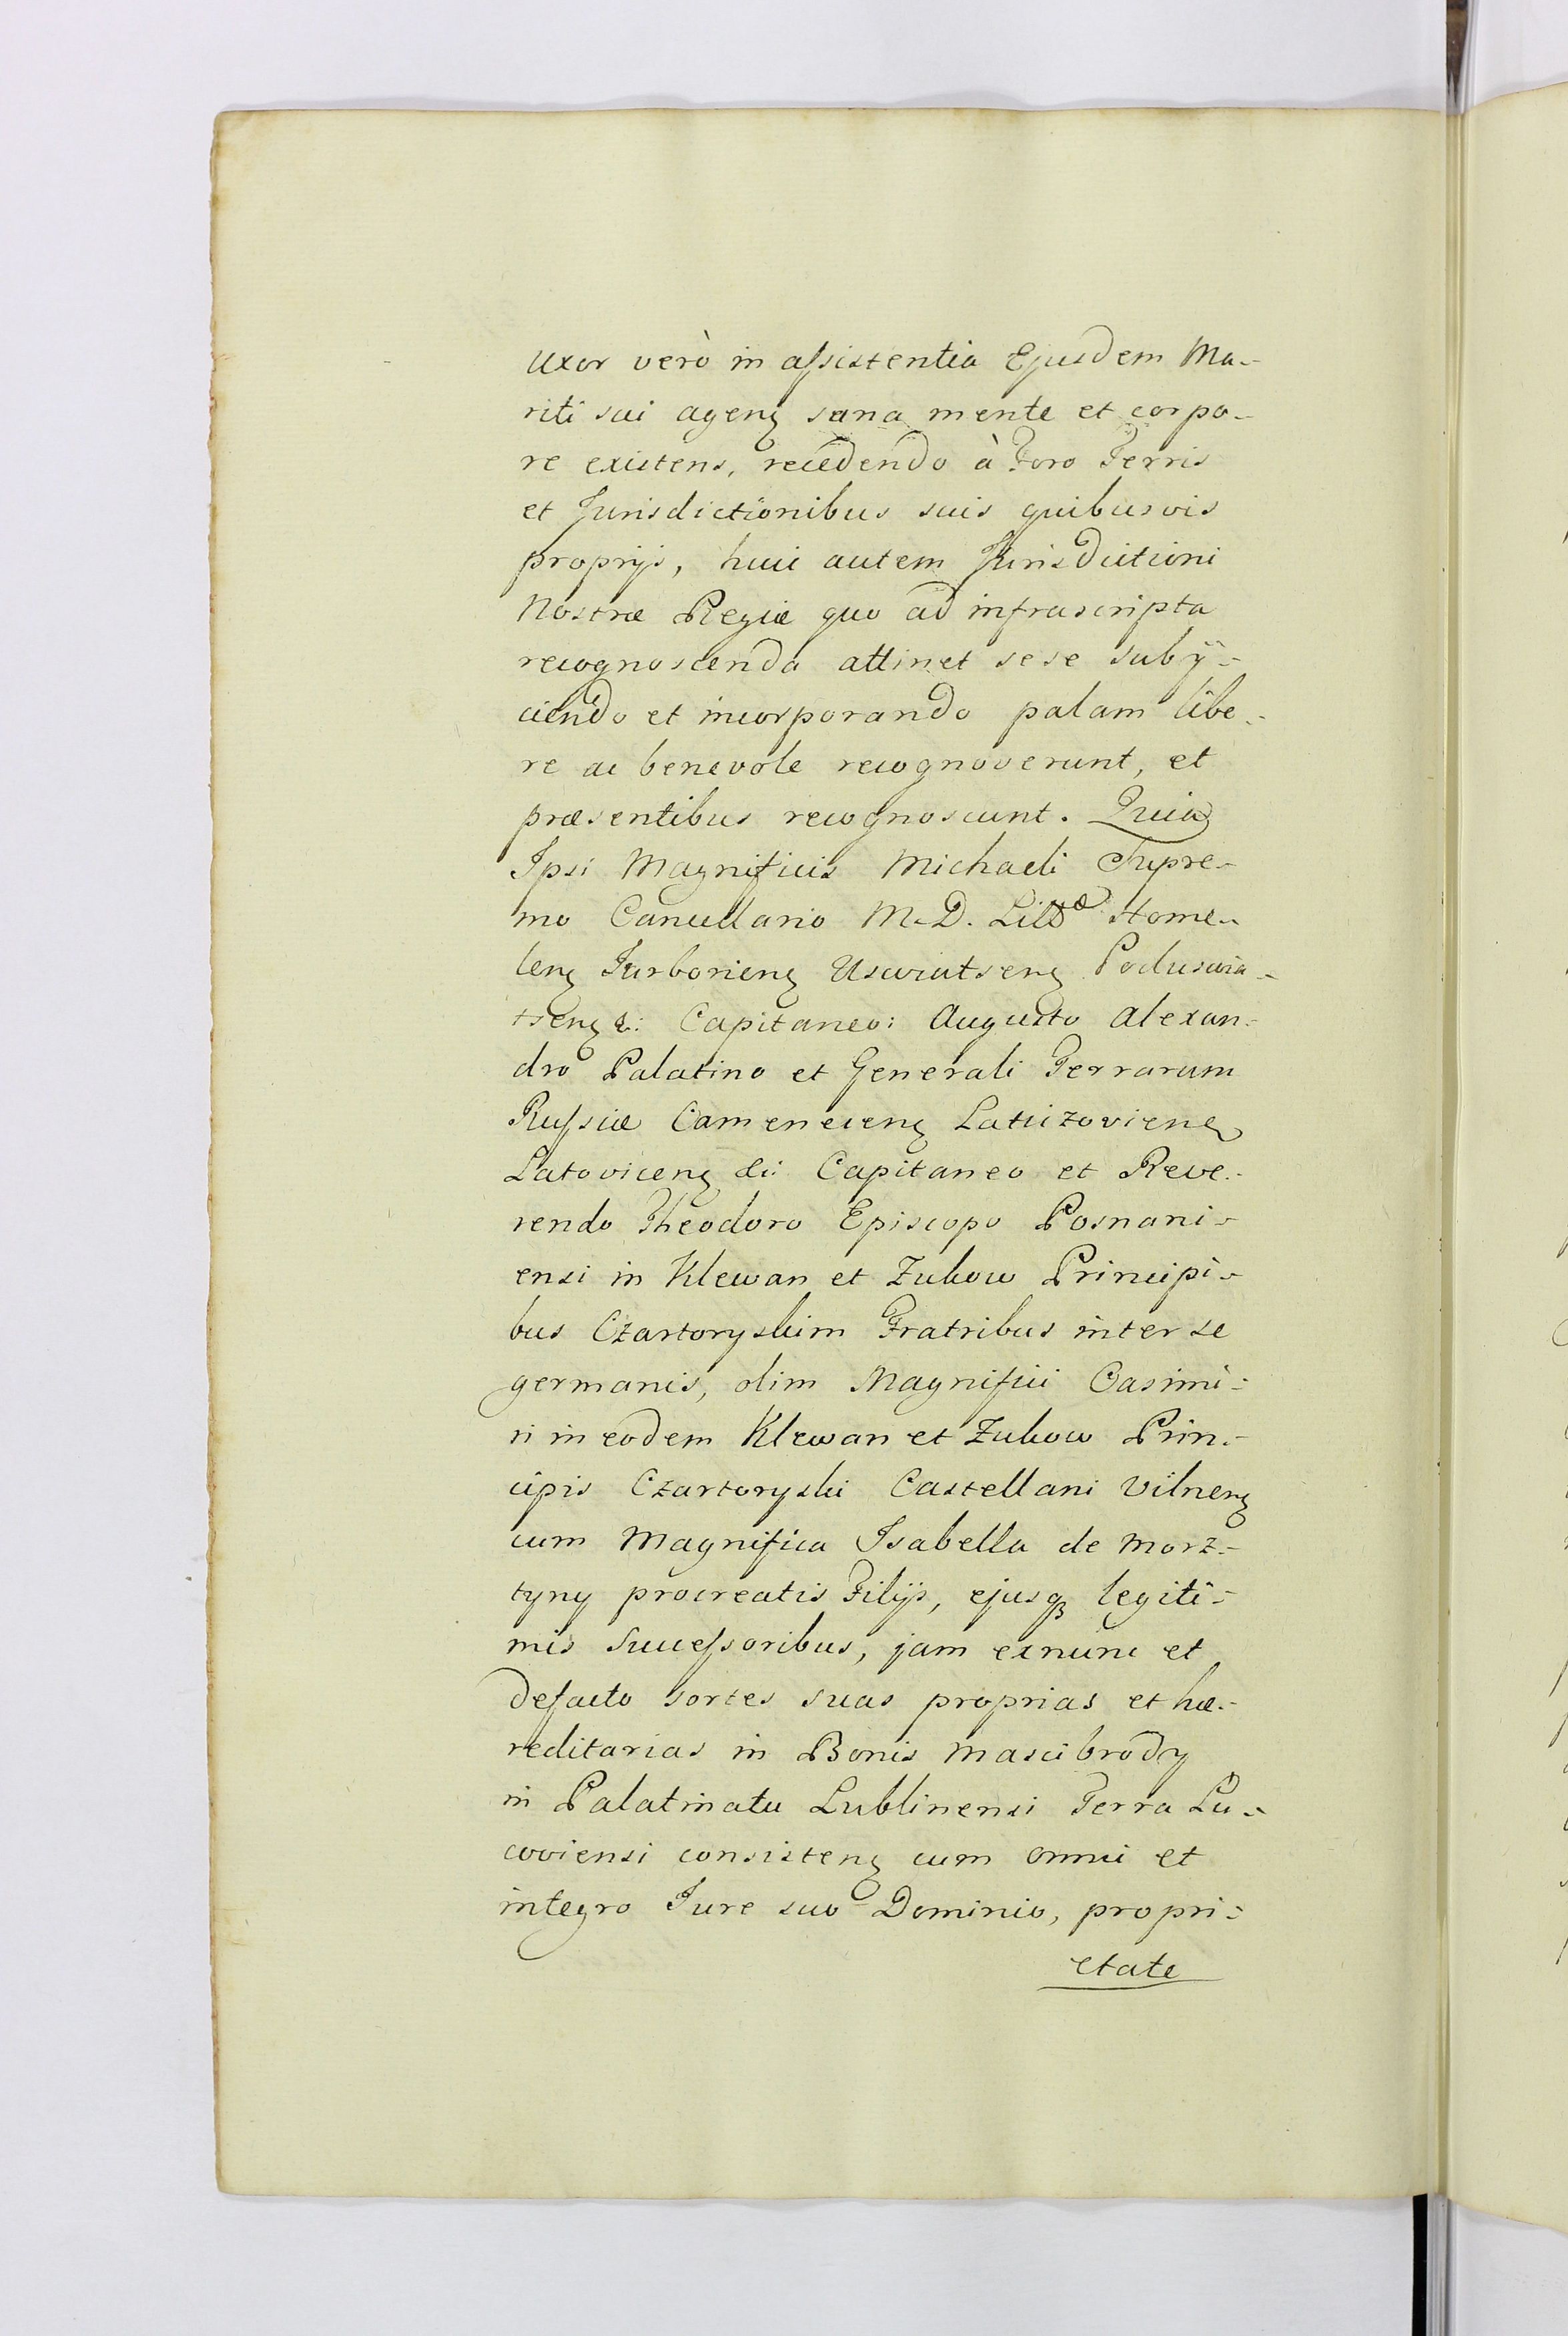 Uxor verò in assistentia Ejusdem Ma-
riti sui agenȝ sana mente et corpo-
re existens, recedendo à Foro Terris
et Jurisdictionibus suis quibusvis
proprijs, huic autem Jurisdictioni
Nostræ Regiæ quo ad infrascripta
recognoscenda attinet sese subij-
ciendo et incorporando palam libe-
re ac benevole recognoverunt, et
præsentibus recognoscunt. Quia
Ipsi Magnificis Michaeli Supre-
mo Cancellario M. D. Litt^æ Home-
lenȝ Jurborienȝ Uswiatsenȝ Poduswia-
tsenȝ &: Capitaneo: Augusto Alexan-
dro Palatino et Generali Terrarum
Russiæ Camenecenȝ Latyczovienȝ
Latovicenȝ &: Capitaneo et Reve-
rendo Theodoro Episcopo Posnani-
ensi in Klewan et Zukow Principi-
bus Czartoryskim Fratribus inter se
germanis, olim Magnifici Casimi-
ri in eodem Klewan et Zukow Prin-
cipis Czartoryski Castellani Vilnenȝ
cum Magnifica Isabella de Morz-
tyny procreatis Filijs, ejusqȝ legiti-
mis Successoribus, jam exnunc et
defacto sortes suas proprias et hæ-
reditarias in Bonis Mascibrody
in Palatinatu Lublinensi Terra Lu-
coviensi consistenȝ cum omni et
integro Jure suo Dominio, propri-
etate